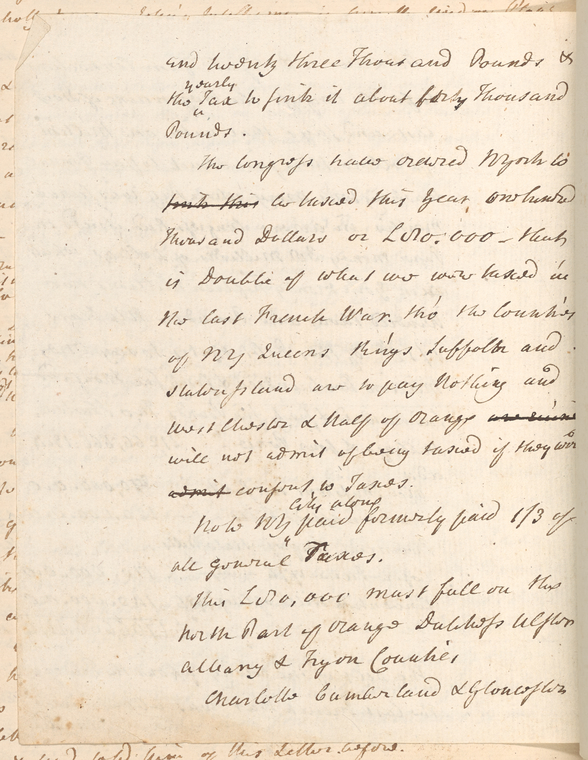 and twenty three Thousand Pounds &
yearly
the Tax to sink it about forty Thousand
Pounds.
The Congress have ordered NYork to
sink this be taxed this Year one hundred
Thousand Dollars or L40.000 – that
is Double of what we were taxed in
the last French War. tho the Counties
of NY Queens Kings Suffolk and
statenIsland are to pay Nothing and
West Chester & Half of Orange
will not admit of being taxed if they were
admit consent to Taxes.
City alone
Note NY paid formerly paid 1/3 of
all general Taxes.
This L40,000 must fall on the
North Part of Orange Dutchess Ulster
Albany & Tryon Counties
Charlotte Cumberland & Gloucester
of this Letter before.